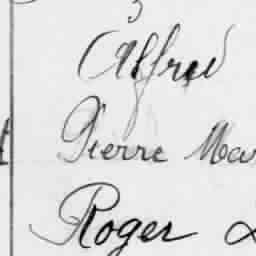 Alfred
Pierre
Roger